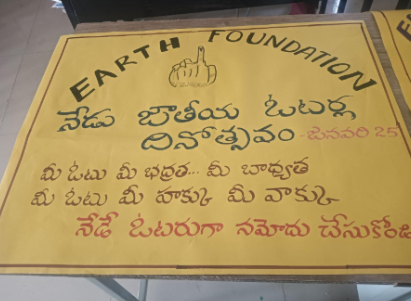 EARTH FOUNDATION
నేడు జాతీయ ఓటర్ల
దినోత్సవం - జనవరి 25
మీ ఓటు మీ భద్రత... మీ బాధ్యత
మీ ఓటు మీ హక్కు మీ వాక్కు
నేడే ఓటరుగా నమోదు చేసుకోండి